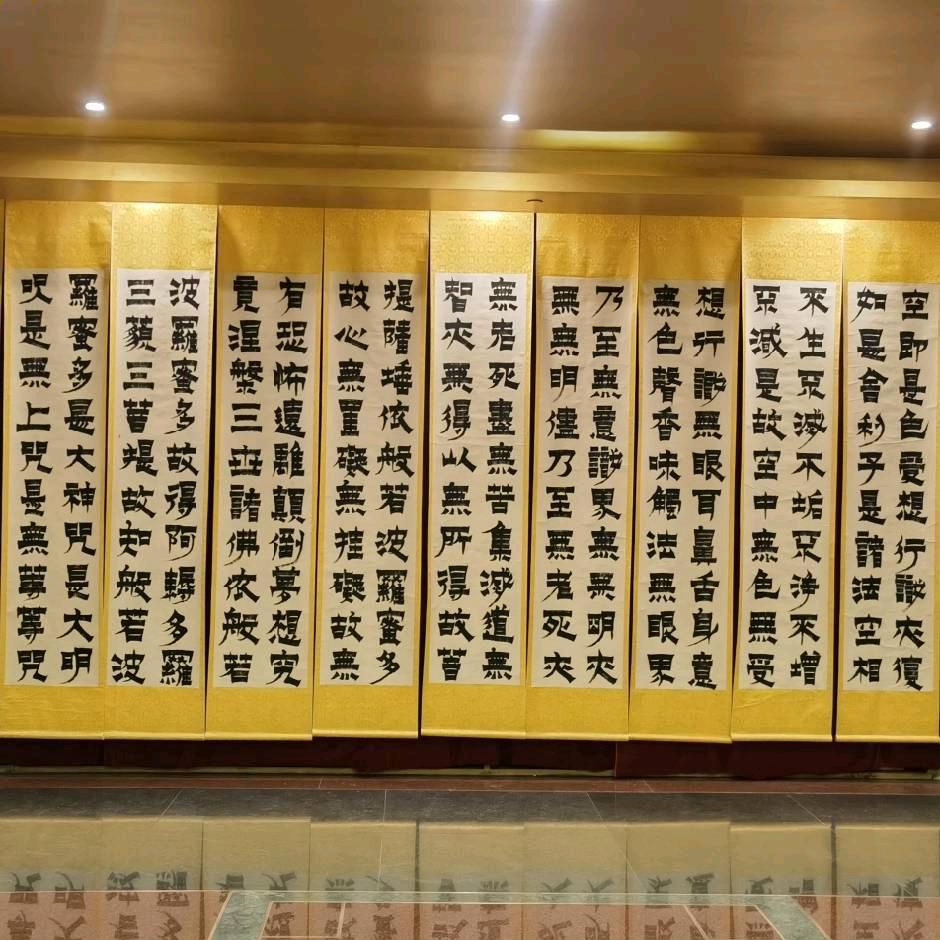 空即是色受想行識亦復
如是舍利子是諸法空相
不生不滅不垢不淨不增
不減是故空中無色無受
想行識無眼耳鼻舌身意
無色聲香味觸法無眼界
乃至無意識界無無明亦
無無明盡乃至無老死亦
無老死盡無苦集滅道無
智亦無得以無所得故菩
提薩埵依般若波羅蜜多
故心無罣礙無挂礙故無
有恐怖遠離顛倒夢想究
竟涅槃三世諸佛依般若
波羅蜜多故得阿耨多羅
三藐三菩提故知般若波
羅蜜多是大神咒是大明
咒是無上咒是無等等咒